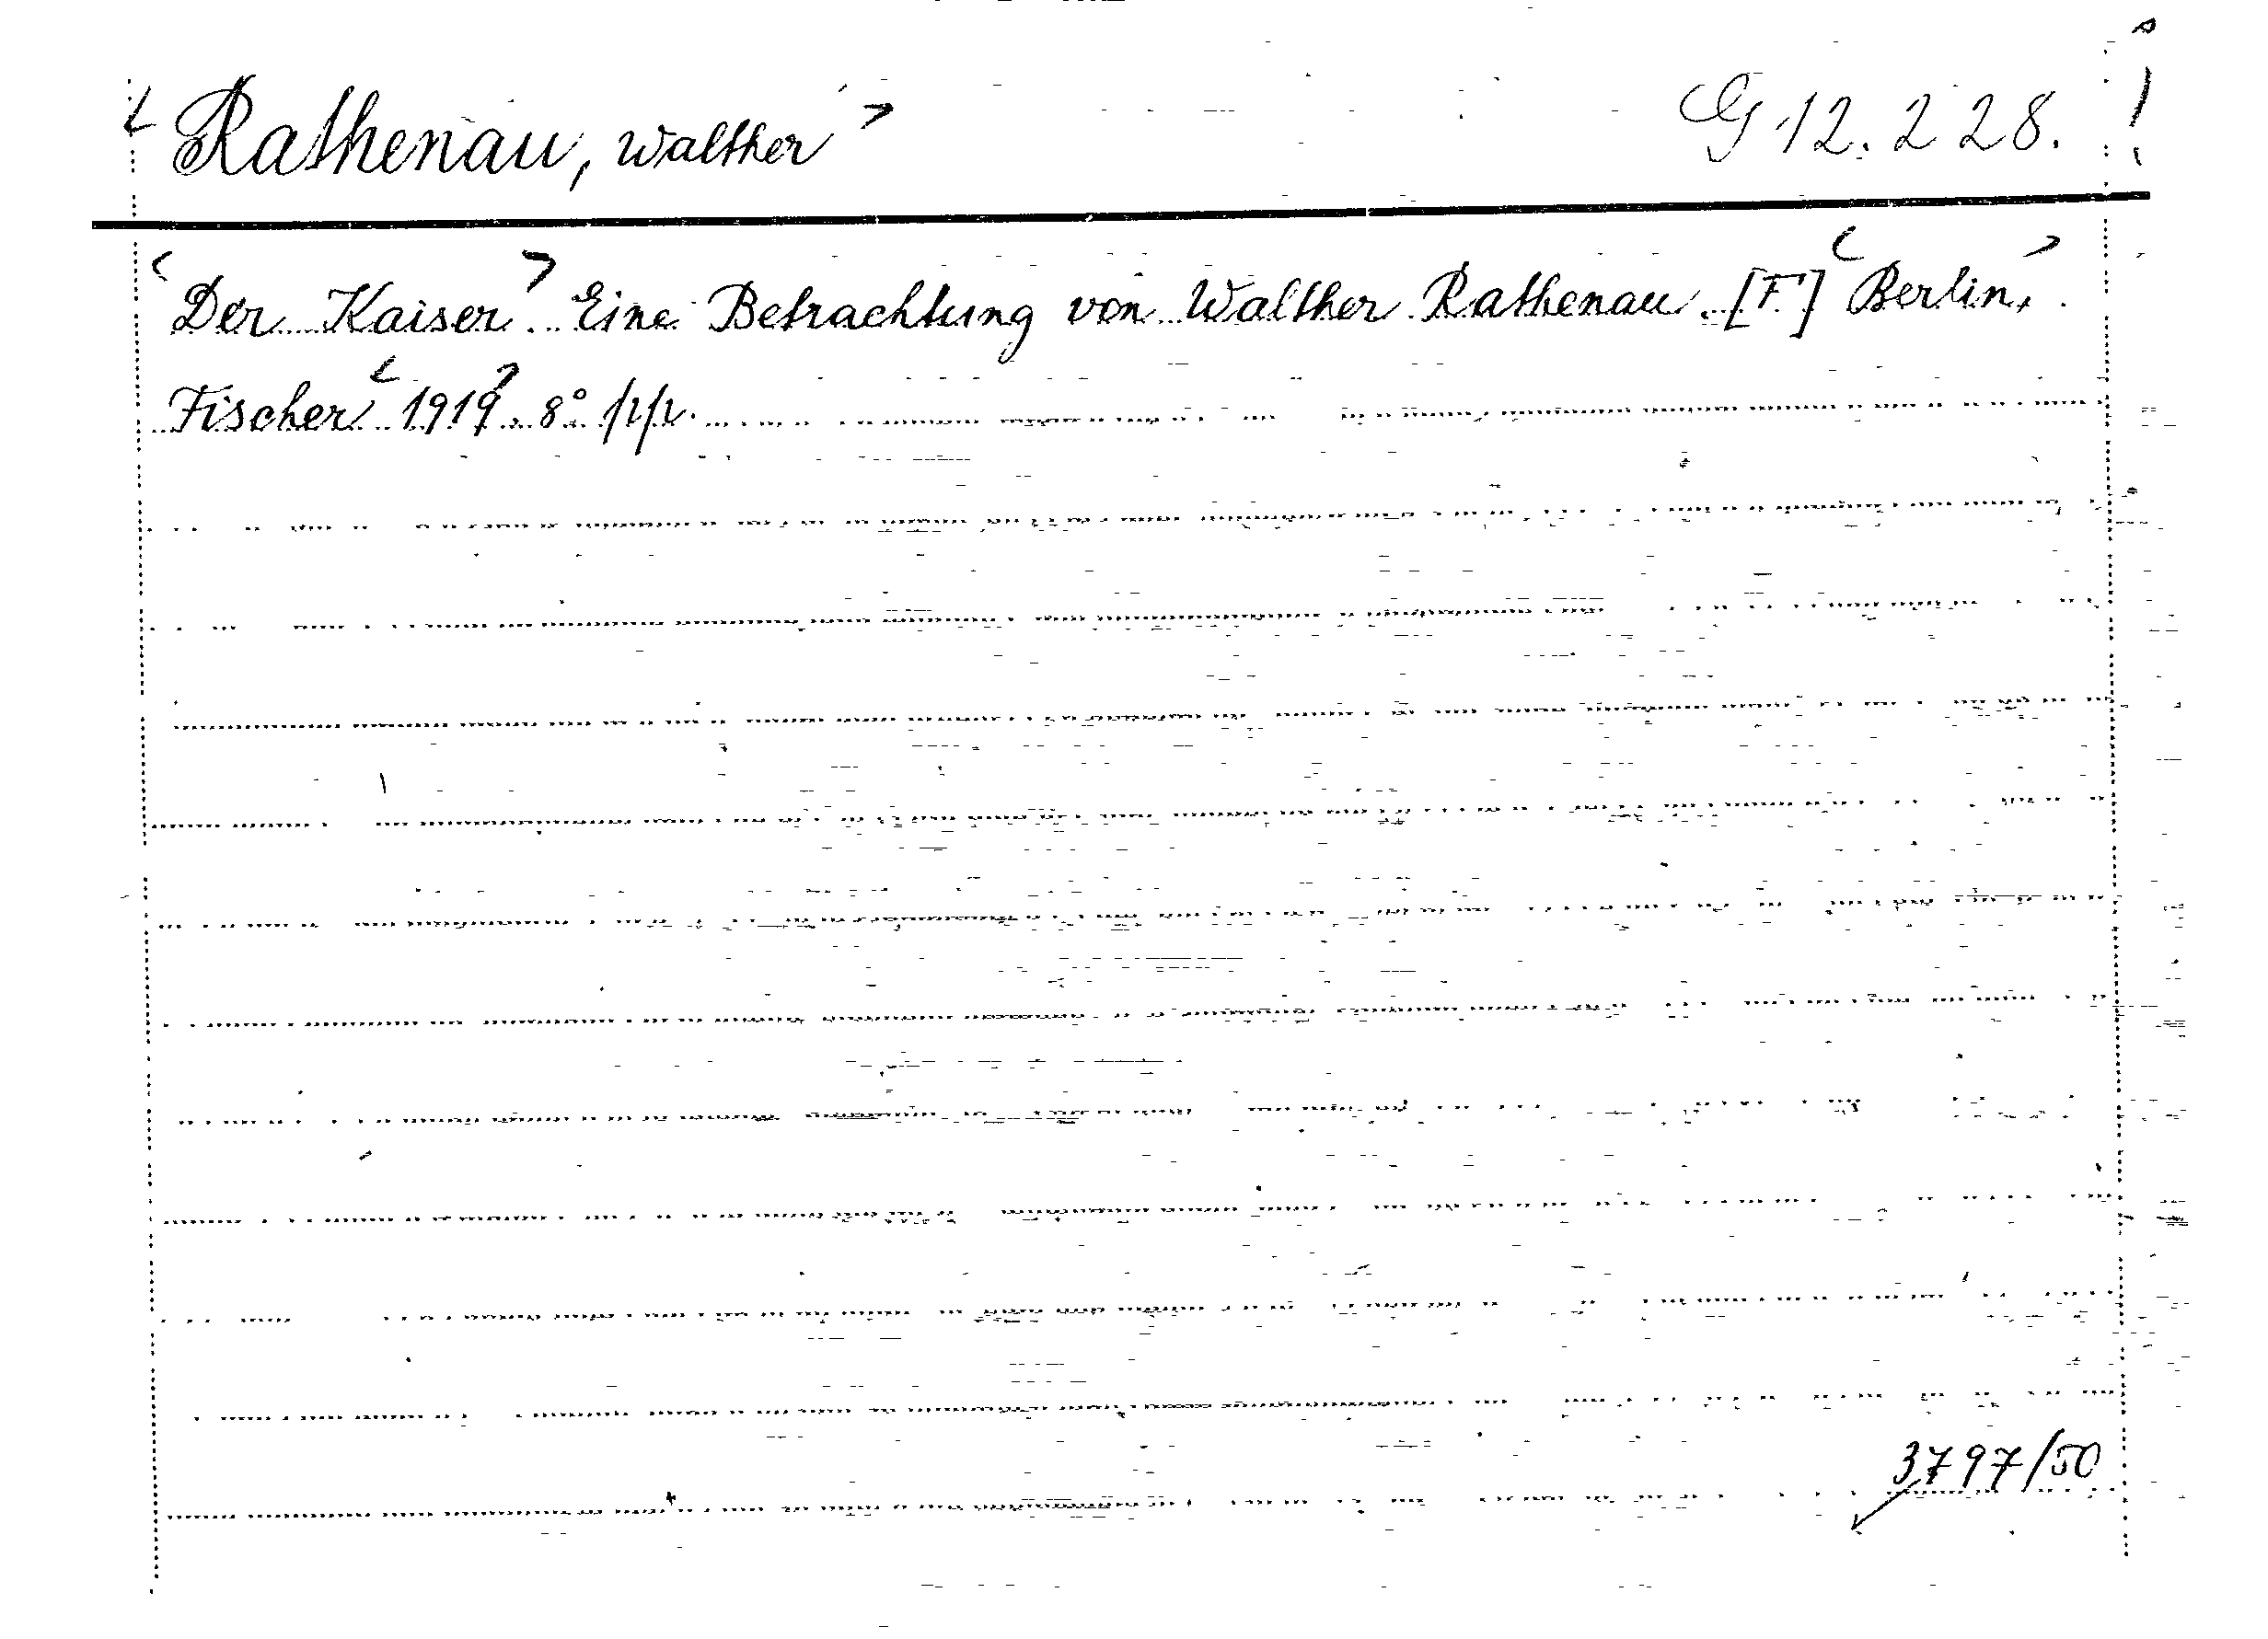 <Rathenau, Walther> G 12.228. !
<Der Kaiser>. Eine Betrachtung von Walther Rathenau. [F] <Berlin,>
Fischer <1919>. 8°
3797/50